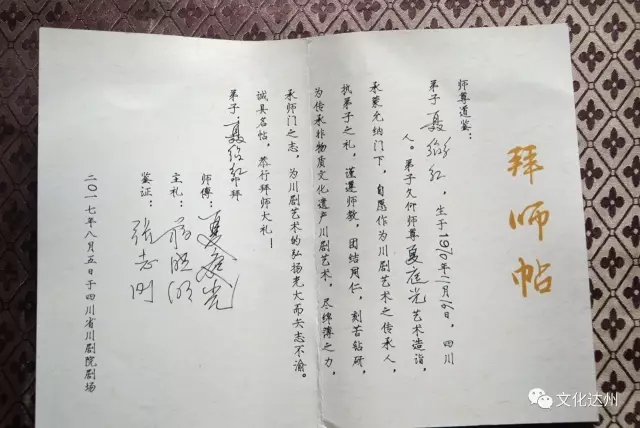 拜师帖
师尊道鉴：
弟子 聂红，生于1970年 月 日，四川
人。弟子久仰师尊夏庭光艺术造诣，
承蒙允纳门下，自愿作为川剧艺术之传承人，
执弟子之礼，谨遵师教，团结同仁，刻苦钻研，
为传承非物质文化遗产川剧艺术，尽绵薄之力，
承师门之志，为川剧艺术的弘扬光大而矢志不渝。
诚具名帖，恭行拜师大礼！
弟子 聂红拜
师傅：夏庭光
主礼：
鉴证：张志刚
二〇一七年八月五日于四川省川剧院剧场
文化达州